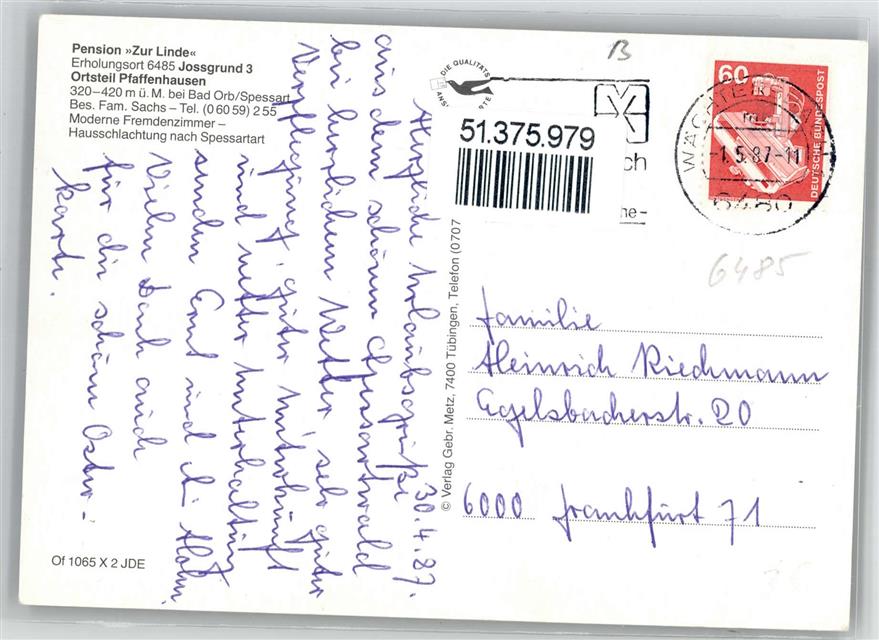 Pension »Zur Linde«
Erholungsort 6485 Jossgrund 3
Ortsteil Pfaffenhausen
320–420 m ü. M. bei Bad Orb/Spessart
Bes. Fam. Sachs – Tel. (0 60 59) 2 55
Moderne Fremdenzimmer –
Hausschlachtung nach Spessartart
30.4.87.
Herzliche Urlaubsgrüße
aus dem schönen Spessartwald
bei herrlichem Wetter, sehr guter
Verpflegung, guter Unterkunft
und netter Unterhaltung
senden Ernst und
Vielen Dank auch
für die schöne Oster-
karte.
Of 1065 X 2 JDE
© Verlag Gebr. Metz, 7400 Tübingen, Telefon (0707
DIE QUALITÄTS
51.375.979
ch
ne-
B
60
DEUTSCHE BUNDESPOST
WÄCHTE
-1.5.87-11
6480
6485
Familie
Heinrich Riechmann
Egelsbacherstr. 20
6000 Frankfurt 71